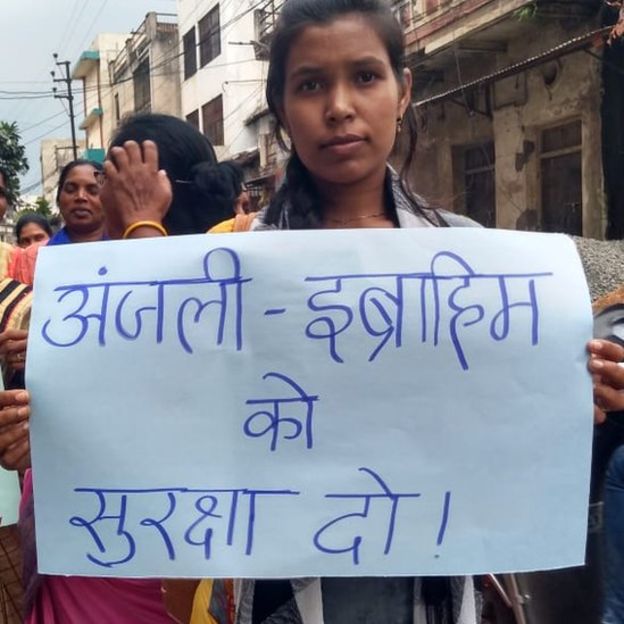 अंजली - इब्राहिम
को
सुरक्षा दो!